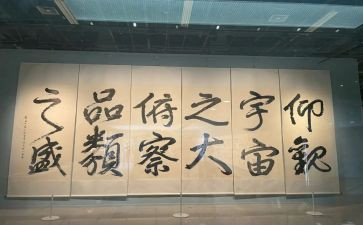 仰觀
宇宙
之大
俯察
品類
之盛